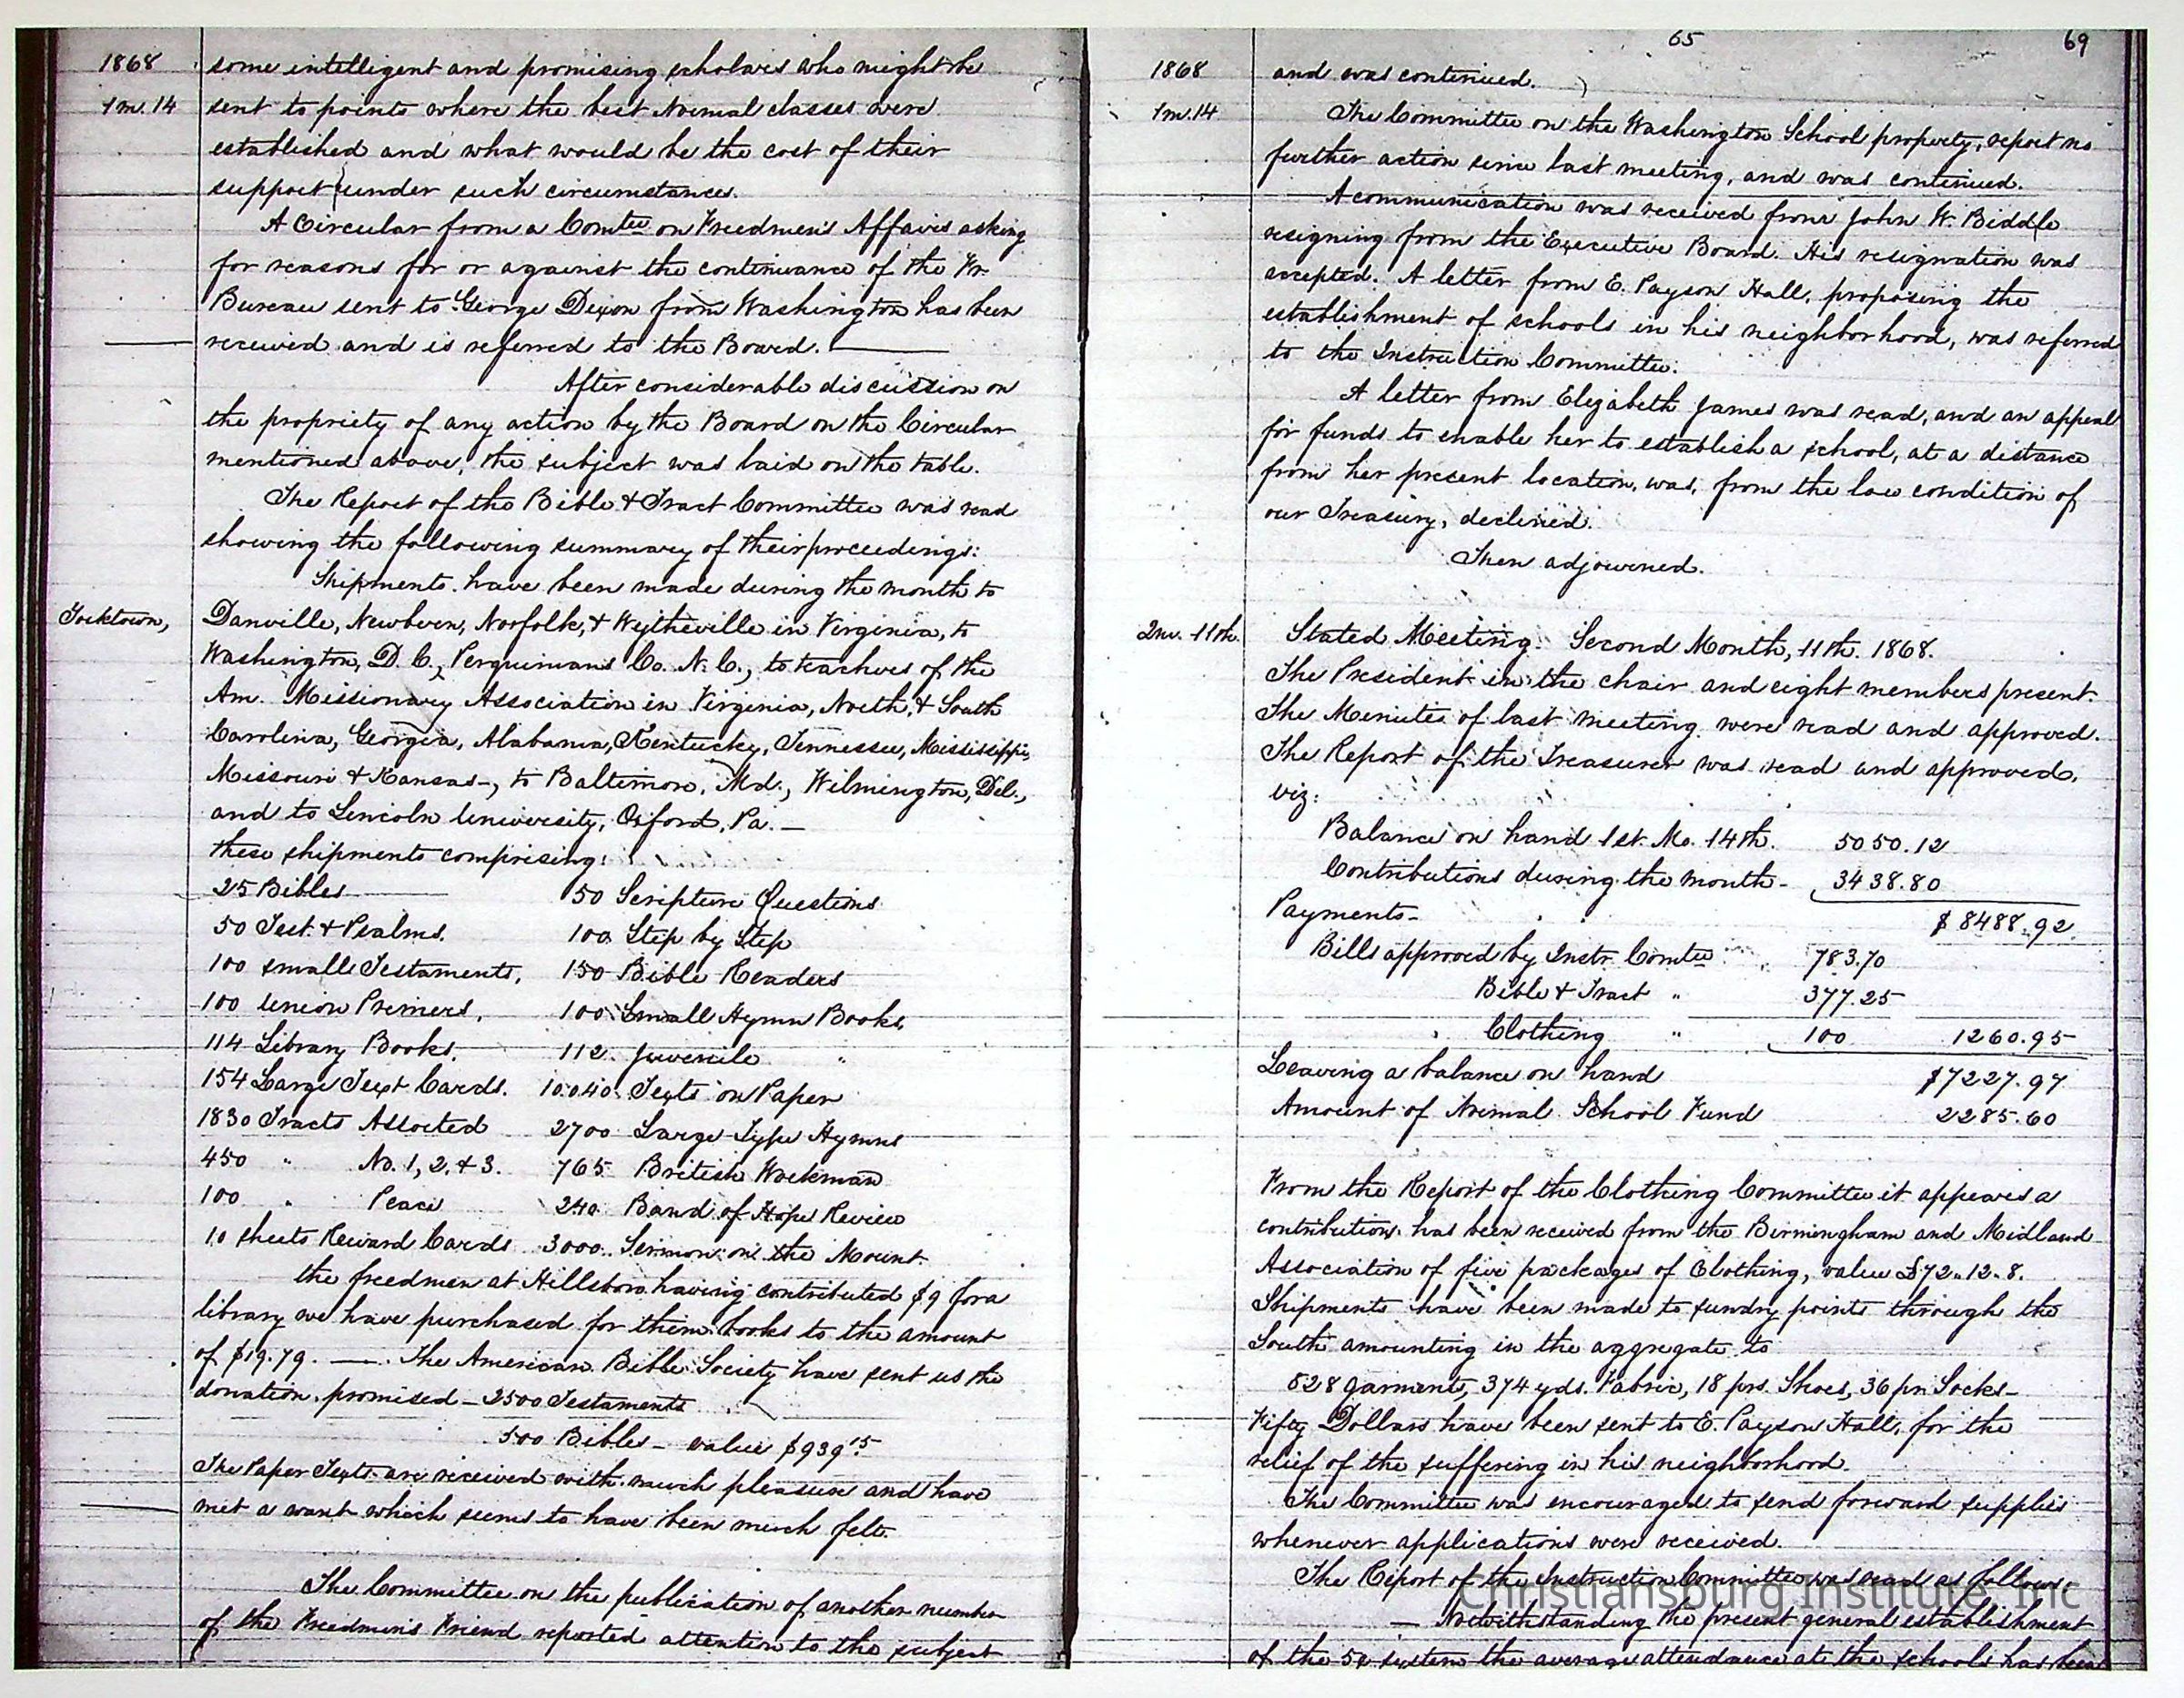 1868
some intelligent and promising scholars who might be
1m. 14
sent to points where the best Normal classes were
established and what would be the cost of their
support under such circumstances.
A Circular from a Comtee on Freedmen's Affairs asking
for reasons for or against the continuance of the Fr.
Bureau sent to George Dixon from Washington has been
received and is referred to the Board.
After considerable discussion on
the propriety of any action by the Board on the Circular
mentioned above, the subject was laid on the table.
The Report of the Bible & Tract Committee was read
showing the following summary of their proceedings:
Shipments have been made during the month to
Yorktown,
Danville, Newbern, Norfolk, & Wytheville in Virginia, to
Washington, D. C., Perquimans Co. N. C., to teachers of the
Am. Missionary Association in Virginia, North, & South
Carolina, Georgia, Alabama, Kentucky, Tennessee, Mississippi,
Missouri & Kansas-, to Baltimore, Md., Wilmington, Del.,
and to Lincoln University, Oxford, Pa. —
these shipments comprising:
25 Bibles 50 Scripture Questions
50 Test. & Psalms. 100 Step by Step
100 small Testaments, 150 Bible Readers
100 Union Primers, 100 Small Hymn Books,
114 Library Books. 112 Juvenile "
154 Large Text Cards. 10.040 Texts on Paper
1830 Tracts Assorted 2700 Large Type Hymns
450 " No. 1, 2, & 3. 765 British Workman
100 " Peace 240 Band of Hope Review
10 sheets Reward Cards 3000 Sermon on the Mount.
the freedmen at Hillsboro having contributed $9 for a
library we have purchased for them books to the amount
of $19.79. —. The American Bible Society have sent us the
donation promised — 2500 Testaments
500 Bibles — value $939.15
The Paper Texts are received with much pleasure and have
met a want which seems to have been much felt.
The Committee on the publication of another number
of the Freedmen's Friend reported attention to the subject
65
69
1868
and was continued.
1m. 14
The Committee on the Washington School property, report no
further action since last meeting, and was continued.
A communication was received from John W. Biddle
resigning from the Executive Board. His resignation was
accepted. A letter from E. Payson Hall, proposing the
establishment of schools in his neighborhood, was referred
to the Instruction Committee.
A letter from Elizabeth James was read, and an appeal
for funds to enable her to establish a school, at a distance
from her present location, was, from the low condition of
our Treasury, declined.
Then adjourned.
2m. 11th.
Stated Meeting. Second Month, 11th. 1868.
The President in the chair and eight members present.
The Minutes of last meeting were read and approved.
The Report of the Treasurer was read and approved,
viz:
Balance on hand 1st. Mo. 14th. 5050.12
Contributions during the month - 3438.80
Payments- $ 8488.92
Bills approved by Instr. Comtee 783.70
Bible & Tract " 377.25
Clothing " 100 1260.95
Leaving a balance on hand $7227.97
Amount of Normal School Fund 2285.60
From the Report of the Clothing Committee it appears a
contribution has been received from the Birmingham and Midland
Association of five packages of Clothing, value £72.12.8.
Shipments have been made to sundry points through the
South amounting in the aggregate to
528 garments, 374 yds. Fabric, 18 prs. Shoes, 36 pr. Socks-
Fifty Dollars have been sent to E. Payson Hall, for the
relief of the suffering in his neighborhood.
The Committee was encouraged to send forward supplies
whenever applications were received.
The Report of the Instruction Committee was read as follows:
— Notwithstanding the present general establishment
of the 5¢ system the average attendance at the schools has been
Christiansburg Institute, Inc